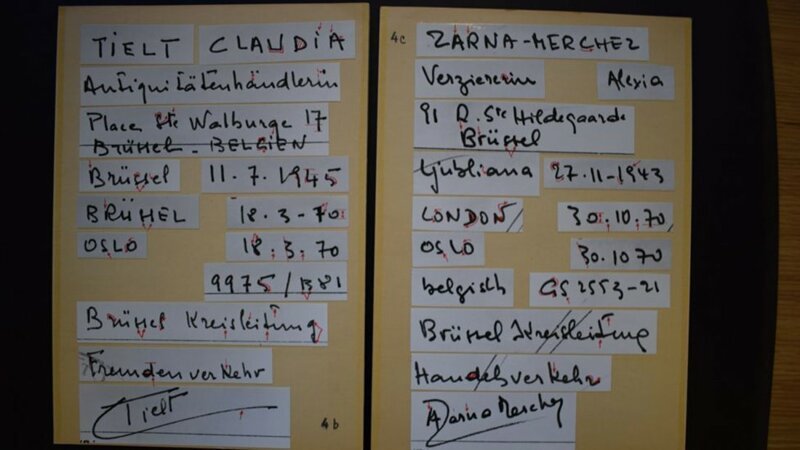 TIELT CLAUDIA
Antiquitätenhändlerin
Place Ste Walburge 17
BRÜSSEL - BELGIEN
Brüssel 11.7.1945
BRÜSSEL 18.3-70
OSLO 18.3.70
9975/B81
Brüssel Kreisleitung
Fremdenverkehr
Tielt
4b
4c ZARNA-MERCHEZ
Verziererin Alexia
91 R. Ste Hildegaarde
Brüssel
Ljubliana 27.11-1943
LONDON 30.10.70
OSLO 30.10 70
belgisch GS 2553-21
Brüssel Kreisleitung
Handelsverkehr